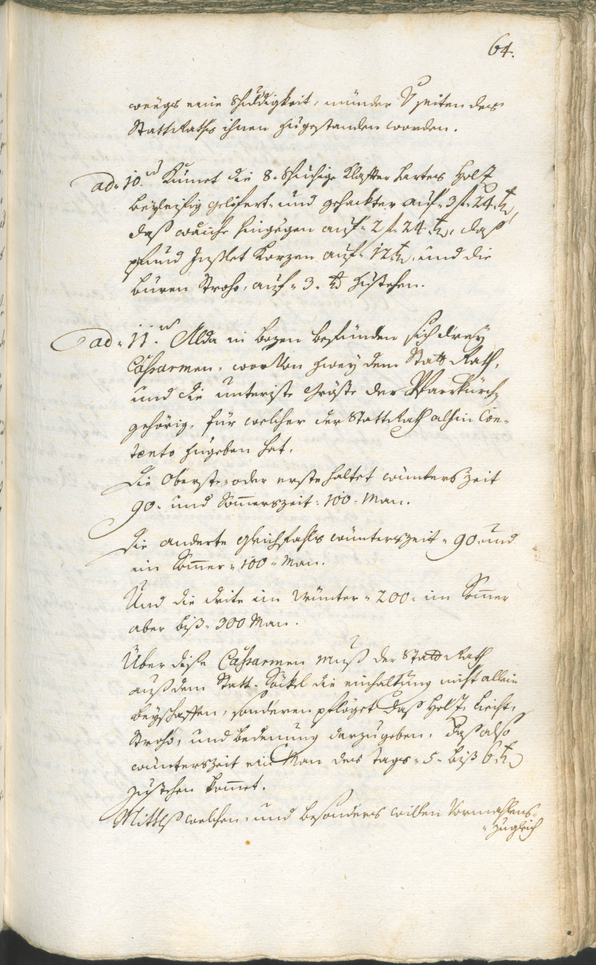 64.
weegs eine Schuldigkeit, minder Seiten des
StattRaths ihnen zugestanden worden.
ad: 10. Kumet die 8. Schuhige Klaffter hartes Holz
beyleifig gelifert und gehackter auf 3 f 24 x,
daß waiche hingegen auf 2 f 24 x, daß
pfund Inßlet Kerzen auf 12 x, und die
Buren Stroh, auf 3. x zustehen.
ad: 11. Alda in Bozen befünden sich drey
Casarmen, worvon zwey dem Statt Rath,
und die unteriste der Pfarrkürch
gehörig, für welcher der StattRath alhin Con-
tento zugeben hat.
Die Oberste, oder erste haltet wünterszeit
90. und Sommerszeit 100. Man.
Die anderte gleichfahls wünterszeit 90. und
im Sommer 100 Man.
Und die drite im Wünter 200. im Sommer
aber biß 300 Man.
Über dise Casarmen muß der Statt Rath
auß dem Statt-Söckel die einhaltung nicht allein
beyschaffen, sonderen pfleget daß Holz, Liecht,
Stroh, und bedenung darzugeben, daß also
wünterszeit ein Man des Tags 5. biß 6 x
zustehen kommet.
Mittls welchen, und besonders willen Vormahlens
zugleich